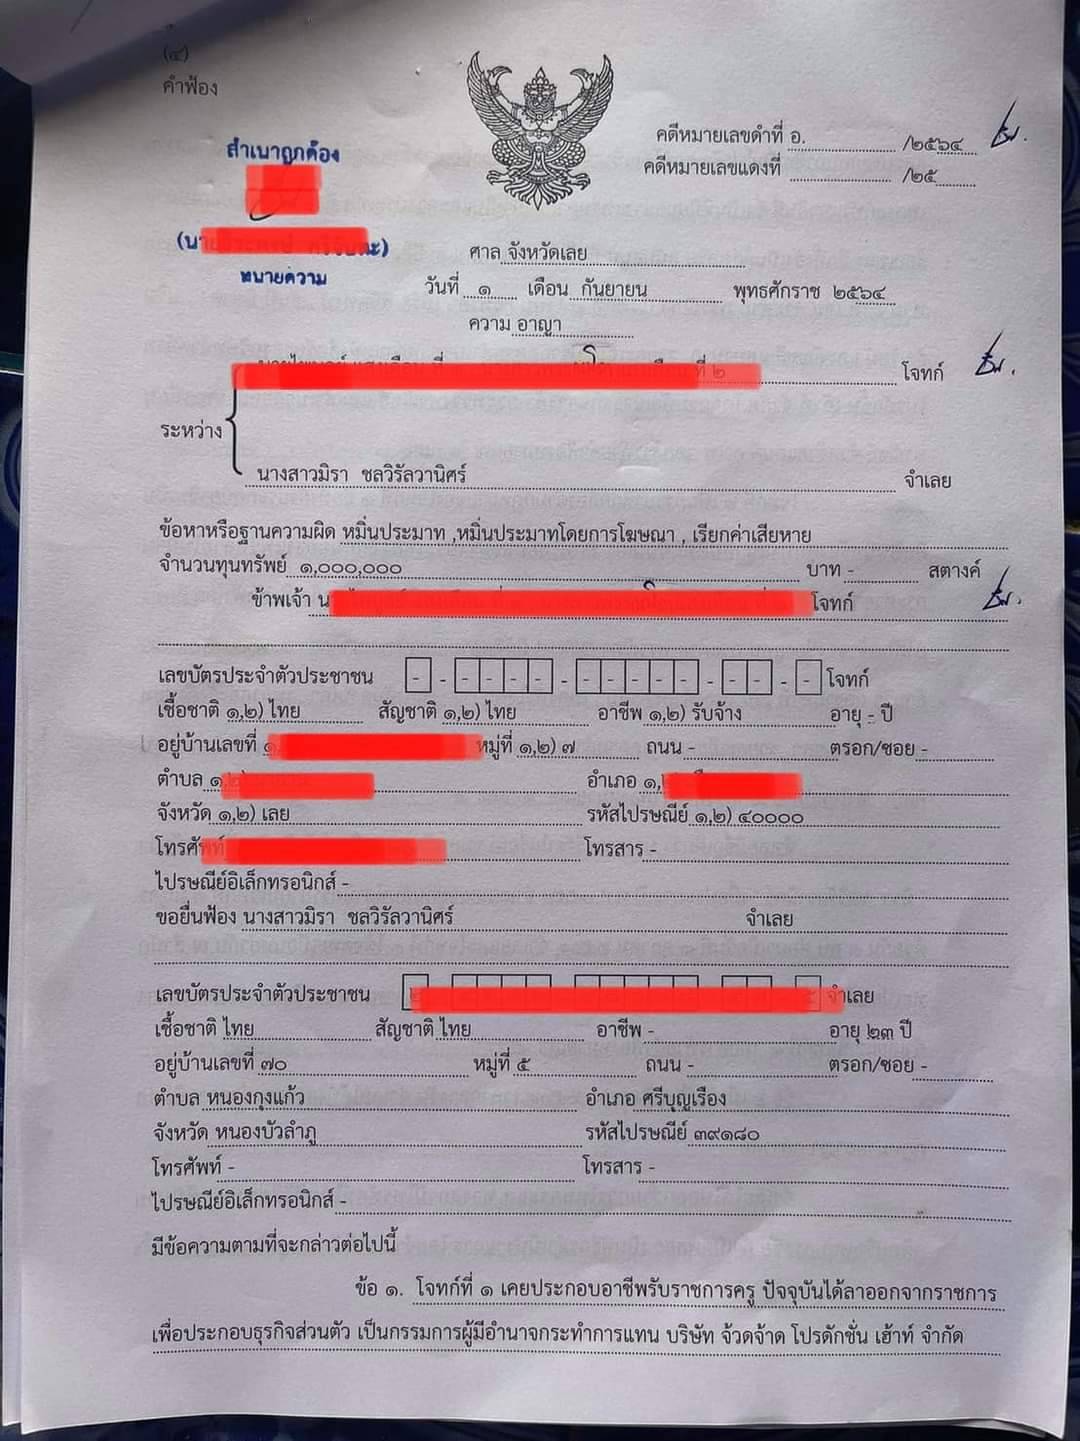 (๔)
คำฟ้อง
สำเนาถูกต้อง
ทนายความ
คดีหมายเลขดำที่ อ. /๒๕๖๔
คดีหมายเลขแดงที่ /๒๕
ศาล จังหวัดเลย
วันที่ ๑ เดือน กันยายน พุทธศักราช ๒๕๖๔
ความ อาญา
ที่ ๒ โจทก์
ระหว่าง
นางสาวมิรา ชลวิรัลวานิศร์ จำเลย
ข้อหาหรือฐานความผิด หมิ่นประมาท ,หมิ่นประมาทโดยการโฆษณา , เรียกค่าเสียหาย
จำนวนทุนทรัพย์ ๑,๐๐๐,๐๐๐ บาท - สตางค์
ข้าพเจ้า โจทก์
เลขบัตรประจำตัวประชาชน - - - - - - - - - - - - - - - - - โจทก์
เชื้อชาติ ๑,๒) ไทย สัญชาติ ๑,๒) ไทย อาชีพ ๑,๒) รับจ้าง อายุ - ปี
อยู่บ้านเลขที่ หมู่ที่ ๑,๒) ๗ ถนน - ตรอก/ซอย -
ตำบล อำเภอ
จังหวัด ๑,๒) เลย รหัสไปรษณีย์ ๑,๒) ๔๐๐๐๐
โทรศัพท์ โทรสาร -
ไปรษณีย์อิเล็กทรอนิกส์ -
ขอยื่นฟ้อง นางสาวมิรา ชลวิรัลวานิศร์ จำเลย
เลขบัตรประจำตัวประชาชน จำเลย
เชื้อชาติ ไทย สัญชาติ ไทย อาชีพ - อายุ ๒๓ ปี
อยู่บ้านเลขที่ ๗๐ หมู่ที่ ๕ ถนน - ตรอก/ซอย -
ตำบล หนองกุงแก้ว อำเภอ ศรีบุญเรือง
จังหวัด หนองบัวลำภู รหัสไปรษณีย์ ๓๙๑๘๐
โทรศัพท์ - โทรสาร -
ไปรษณีย์อิเล็กทรอนิกส์ -
มีข้อความตามที่จะกล่าวต่อไปนี้
ข้อ ๑. โจทก์ที่ ๑ เคยประกอบอาชีพรับราชการครู ปัจจุบันได้ลาออกจากราชการ
เพื่อประกอบธุรกิจส่วนตัว เป็นกรรมการผู้มีอำนาจกระทำการแทน บริษัท จ้วดจ้าด โปรดักชั่น เฮ้าท์ จำกัด